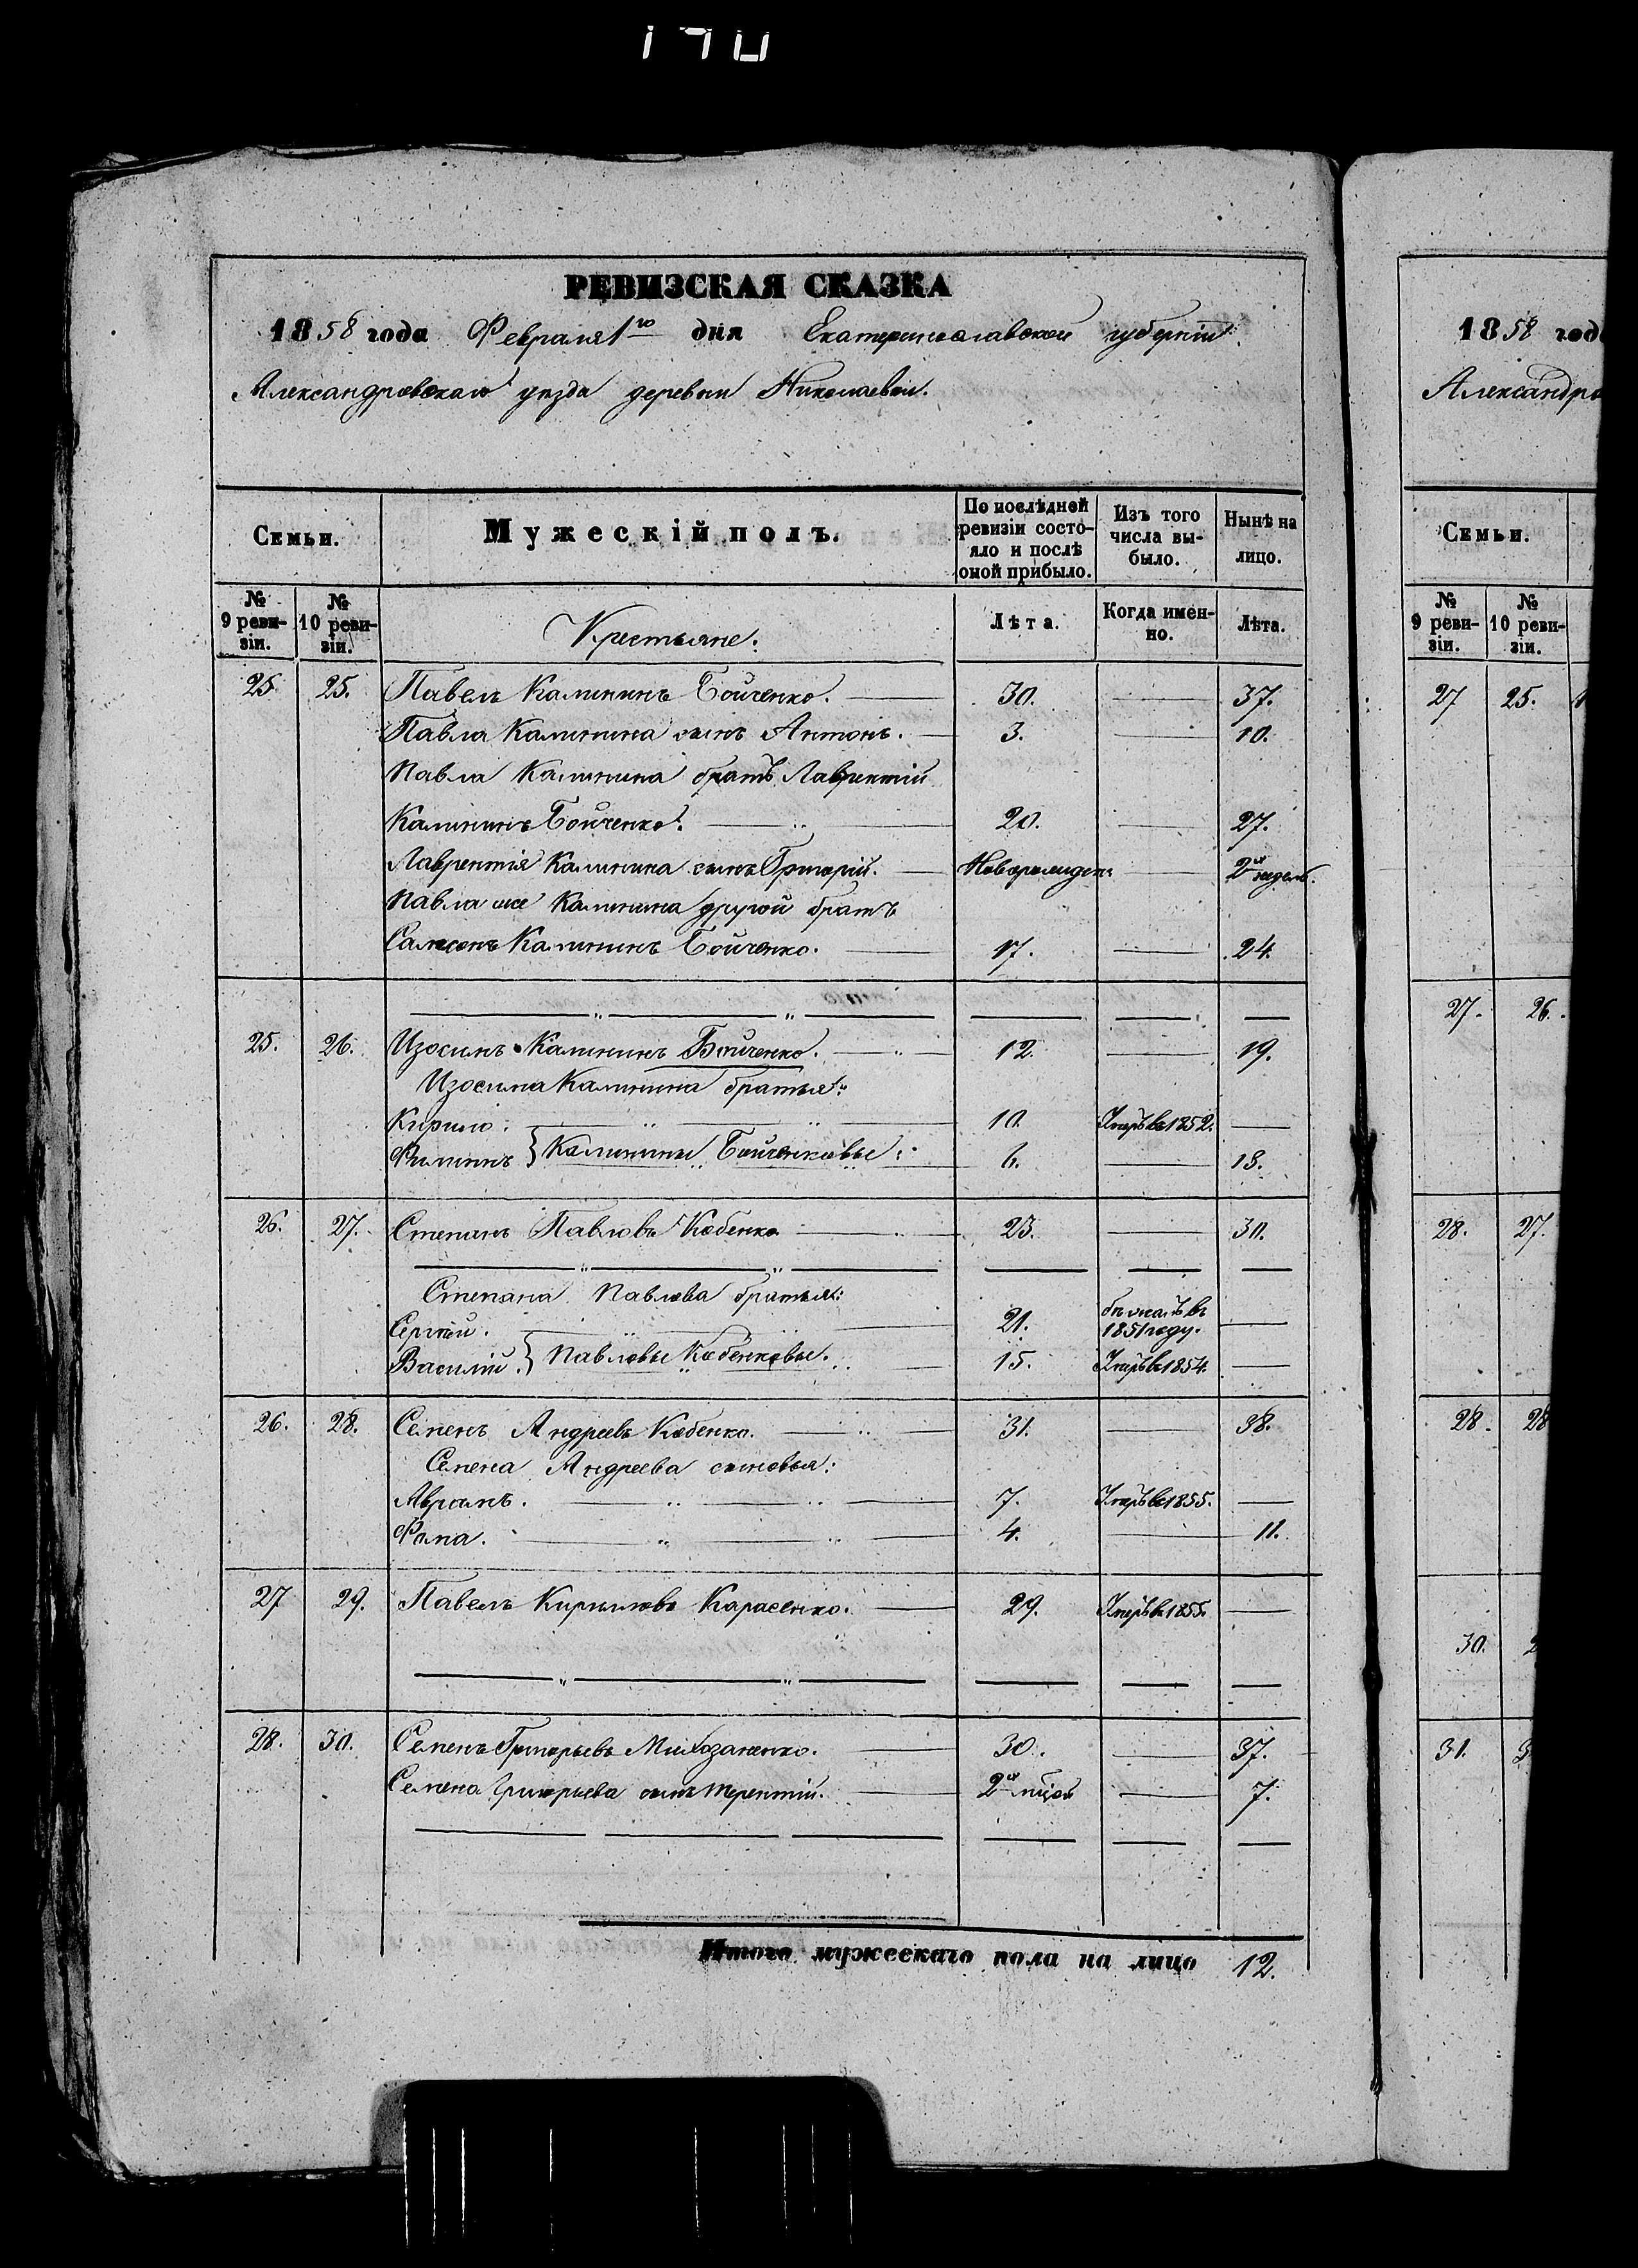 170
РЕВИЗСКАЯ СКАЗКА
1858 года Февраля 1го дня Екатеринославской губернiи
Александровскаго уезда деревни Николаевки.
Семьи.
Мужескiй полъ.
По послѣдней ревизiи состояло и послѣ оной прибыло.
Изъ того числа выбыло.
Нынѣ на лицо.
№ 9 ревизiи.
№ 10 ревизiи.
Крестьяне:
Лѣта.
Когда именно.
Лѣта.
25 25. Павелъ Калининъ Бойченко. 30. 37.
Павла Калинина сынъ Антонъ. 3. 10.
Павла Калинина братъ Лаврентiй
Калининъ Бойченко. 20. 27.
Лаврентiя Калинина сынъ Григорiй. Новорожден: 2хъ недель.
Павла же Калинина другой братъ
Самсонъ Калининъ Бойченко. 17. 24.
25. 26. Изосимъ Калининъ Бойченко. 12. 19.
Изосима Калинина братья:
Кирило. 10. Умеръ въ 1852.
Филипъ } Калинины Бойченковы: 6. 13.
26. 27. Степанъ Павловъ Кобенко 23. 30.
Степана Павлова братья:
Сергѣй. 21. бежалъ въ 1851 году.
Василiй. } Павловы Кобенковы. 15. Умеръ въ 1854.
26. 28. Семенъ Андреевъ Кобенко. 31. 38.
Семена Андреева сыновья:
Аврамъ. 7. Умеръ въ 1855.
Фома. 4. 11.
27 29. Павелъ Кириловъ Карасенко. 29. Умеръ въ 1855.
28. 30. Семенъ Григорьевъ 30. 37.
Семена Григорьева сынъ Терентiй. 2хъ 7.
Итого мужескаго пола на лицо 12.
1858 год
Александро
Семьи.
№ 9 ревизiи.
№ 10 ревизiи.
27 25.
27. 26.
28. 27.
28. 28
30.
31. 3